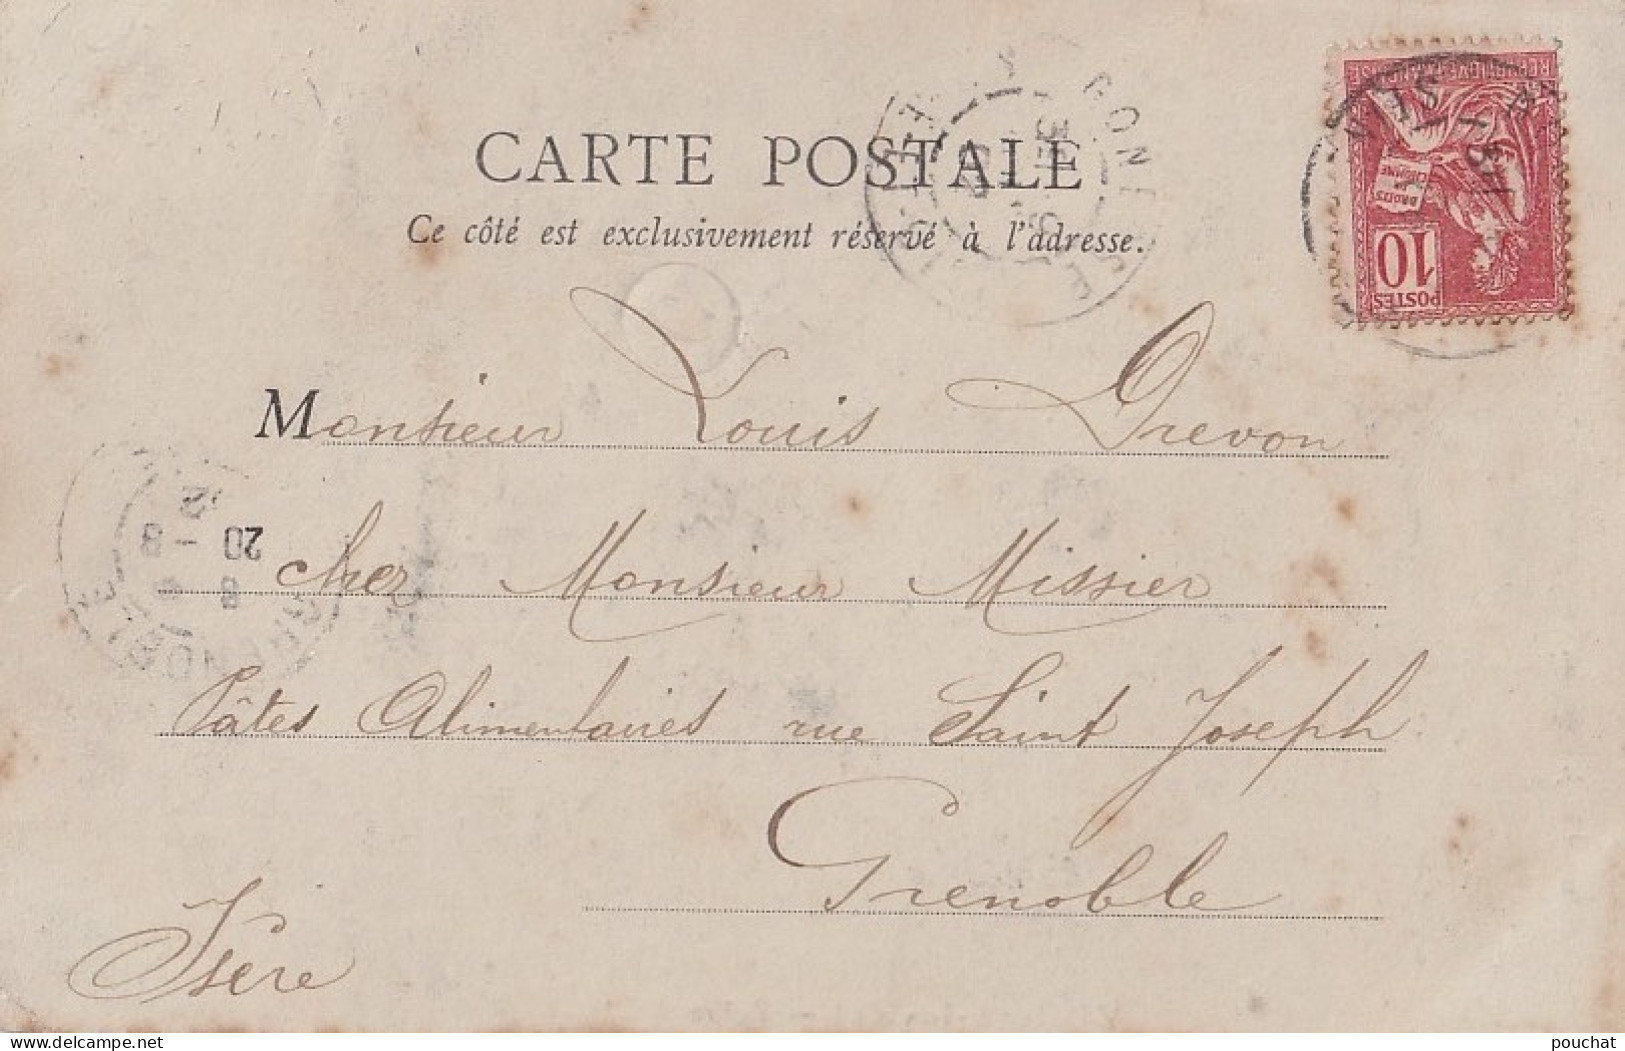 CARTE POSTALE
Ce côté est exclusivement réservé à l'adresse.
RÉPUBLIQUE FRANÇAISE
DROITS DE L'HOMME
10
POSTES
Monsieur Louis Drevon
chez Monsieur Missier
Pâtes Alimentaires rue Saint Joseph
Grenoble
Isère
GRENOBLE
pouchat